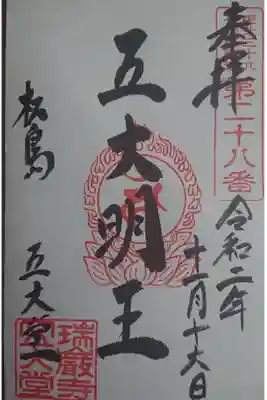 奉拝
第二十八番
令和二年
十一月十六日
五大明王
松島
五大堂
瑞巌寺
五大堂